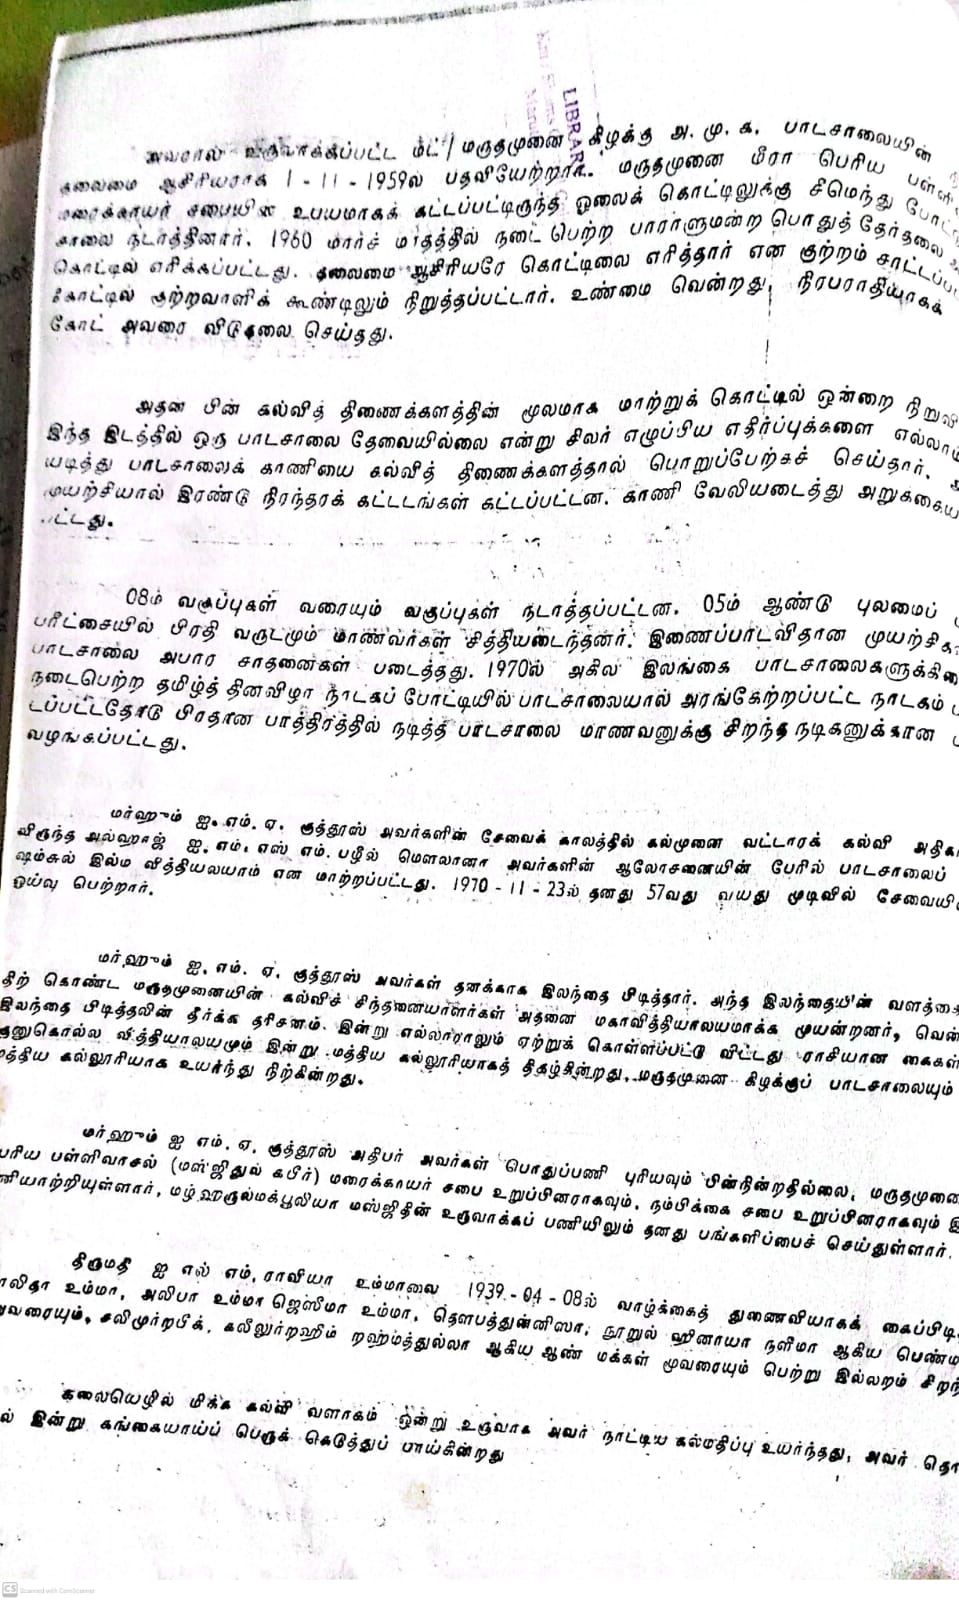 LIBRAR
அவரால் உருவாக்கப்பட்ட மட்/மருதமுனை கிழக்கு அ.மு.க. பாடசாலையின்
தலைமை ஆசிரியராக 1-11-1959ல் பதவியேற்றார். மருதமுனை மீரா பெரிய பள்ளி
மரைக்காயர் சபையின் உபயமாகக் கட்டப்பட்டிருந்த ஓலைக் கொட்டிலுக்கு சீமெந்து போட்
சாலை நடாத்தினார். 1960 மார்ச் மாதத்தில் நடை பெற்ற பாராளுமன்ற பொதுத் தேர்தலை
கொட்டில் எரிக்கப்பட்டது. தலைமை ஆசிரியரே கொட்டிலை எரித்தார் என குற்றம் சாட்டப்ப
கோட்டில் குற்றவாளிக் கூண்டிலும் நிறுத்தப்பட்டார். உண்மை வென்றது, நிரபராதியாகக்
கோட் அவரை விடுதலை செய்தது.
அதன பின் கல்வித் திணைக்களத்தின் மூலமாக மாற்றுக் கொட்டில் ஒன்றை நிறுவி
இந்த இடத்தில் ஒரு பாடசாலை தேவையில்லை என்று சிலர் எழுப்பிய எதிர்ப்புக்களை எல்லாம்
யடித்து பாடசாலைக் காணியை கல்வித் திணைக்களத்தால் பொறுப்பேற்கச் செய்தார்.
முயற்சியால் இரண்டு நிரந்தரக் கட்டடங்கள் கட்டப்பட்டன. காணி வேலியடைத்து அறுக்கைய
ட்டது.
08ம் வகுப்புகள் வரையும் வகுப்புகள் நடாத்தப்பட்டன. 05ம் ஆண்டு புலமைப்
பரீட்சையில் பிரதி வருடமும் மாணவர்கள் சித்தியடைந்தனர். இணைப்பாடவிதான முயற்சிக
பாடசாலை அபார சாதனைகள் படைத்தது. 1970ல் அகில இலங்கை பாடசாலைகளுக்கிடை
நடைபெற்ற தமிழ்த் தினவிழா நாடகப் போட்டியில் பாடசாலையால் அரங்கேற்றப்பட்ட நாடகம்
டப்பட்டதோடு பிரதான பாத்திரத்தில் நடித்த பாடசாலை மாணவனுக்கு சிறந்த நடிகனுக்கான
வழங்கப்பட்டது.
மர்ஹும் ஐ.எம்.ஏ. குத்தூஸ் அவர்களின் சேவைக் காலத்தில் கல்முனை வட்டாரக் கல்வி அதிகா
விருந்த அல்ஹாஜ் ஐ.எம்.எஸ் எம்.பழீல் மௌலானா அவர்களின் ஆலோசனையின் பேரில் பாடசாலைப்
ஷம்சுல் இல்ம வித்தியலயாம் என மாற்றப்பட்டது. 1970-11-23ல் தனது 57வது வயது முடிவில் சேவையி
ஓய்வு பெற்றார்.
மர்ஹும் ஐ.எம்.ஏ. குத்தூஸ் அவர்கள் தனக்காக இலந்தை பிடித்தார். அந்த இலந்தையின் வளத்தை
திற் கொண்ட மருதமுனையின் கல்விச் சிந்தனையாளர்கள் அதனை மகாவித்தியாலயமாக்க முயன்றனர், வென்
இலந்தை பிடித்தலின் தீர்க்க தரிசனம். இன்று எல்லாராலும் ஏற்றுக் கொள்ளப்பட்டு விட்டது ராசியான கைகள்
னுகொல்ல வித்தியாலயமும் இன்று மத்திய கல்லூரியாகத் திகழ்கின்றது. மருதமுனை கிழக்குப் பாடசாலையும்
மத்திய கல்லூரியாக உயர்ந்து நிற்கின்றது.
மர்ஹும் ஐ எம்.ஏ. குத்தூஸ் அதிபர் அவர்கள் பொதுப்பணி புரியவும் பின்நின்றதில்லை. மருதமுனை
பரிய பள்ளிவாசல் (மஸ்ஜிதுல் கபீர்) மரைக்காயர் சபை உறுப்பினராகவும், நம்பிக்கை சபை உறுப்பினராகவும்
ணியாற்றியுள்ளார், மழ்ஹருல்மக்பூலியா மஸ்ஜிதின் உருவாக்கப் பணியிலும் தனது பங்களிப்பைச் செய்துள்ளார்.
திருமதி ஐ எல் எம்.ராவியா உம்மாவை 1939-04-08ல் வாழ்க்கைத் துணைவியாகக் கைப்பிடி
லிதா உம்மா, அலிபா உம்மா ஜெஸீமா உம்மா, தௌபத்துன்னிஸா, நூறுல் ஹினாயா நளிமா ஆகிய பெண்ம
வரையும், சலிமுர்றபீக், கலீலுர்றஹிம் றஹ்மத்துல்லா ஆகிய ஆண் மக்கள் மூவரையும் பெற்று இல்லறம் சிறந்
கலையெழில் மிக்க கல்வி வளாகம் ஒன்று உருவாக அவர் நாட்டிய கல்மதிப்பு உயர்ந்தது, அவர் தொ
ல் இன்று கங்கையாய்ப் பெருக் கெடுத்துப் பாய்கின்றது
CS Scanned with CamScanner